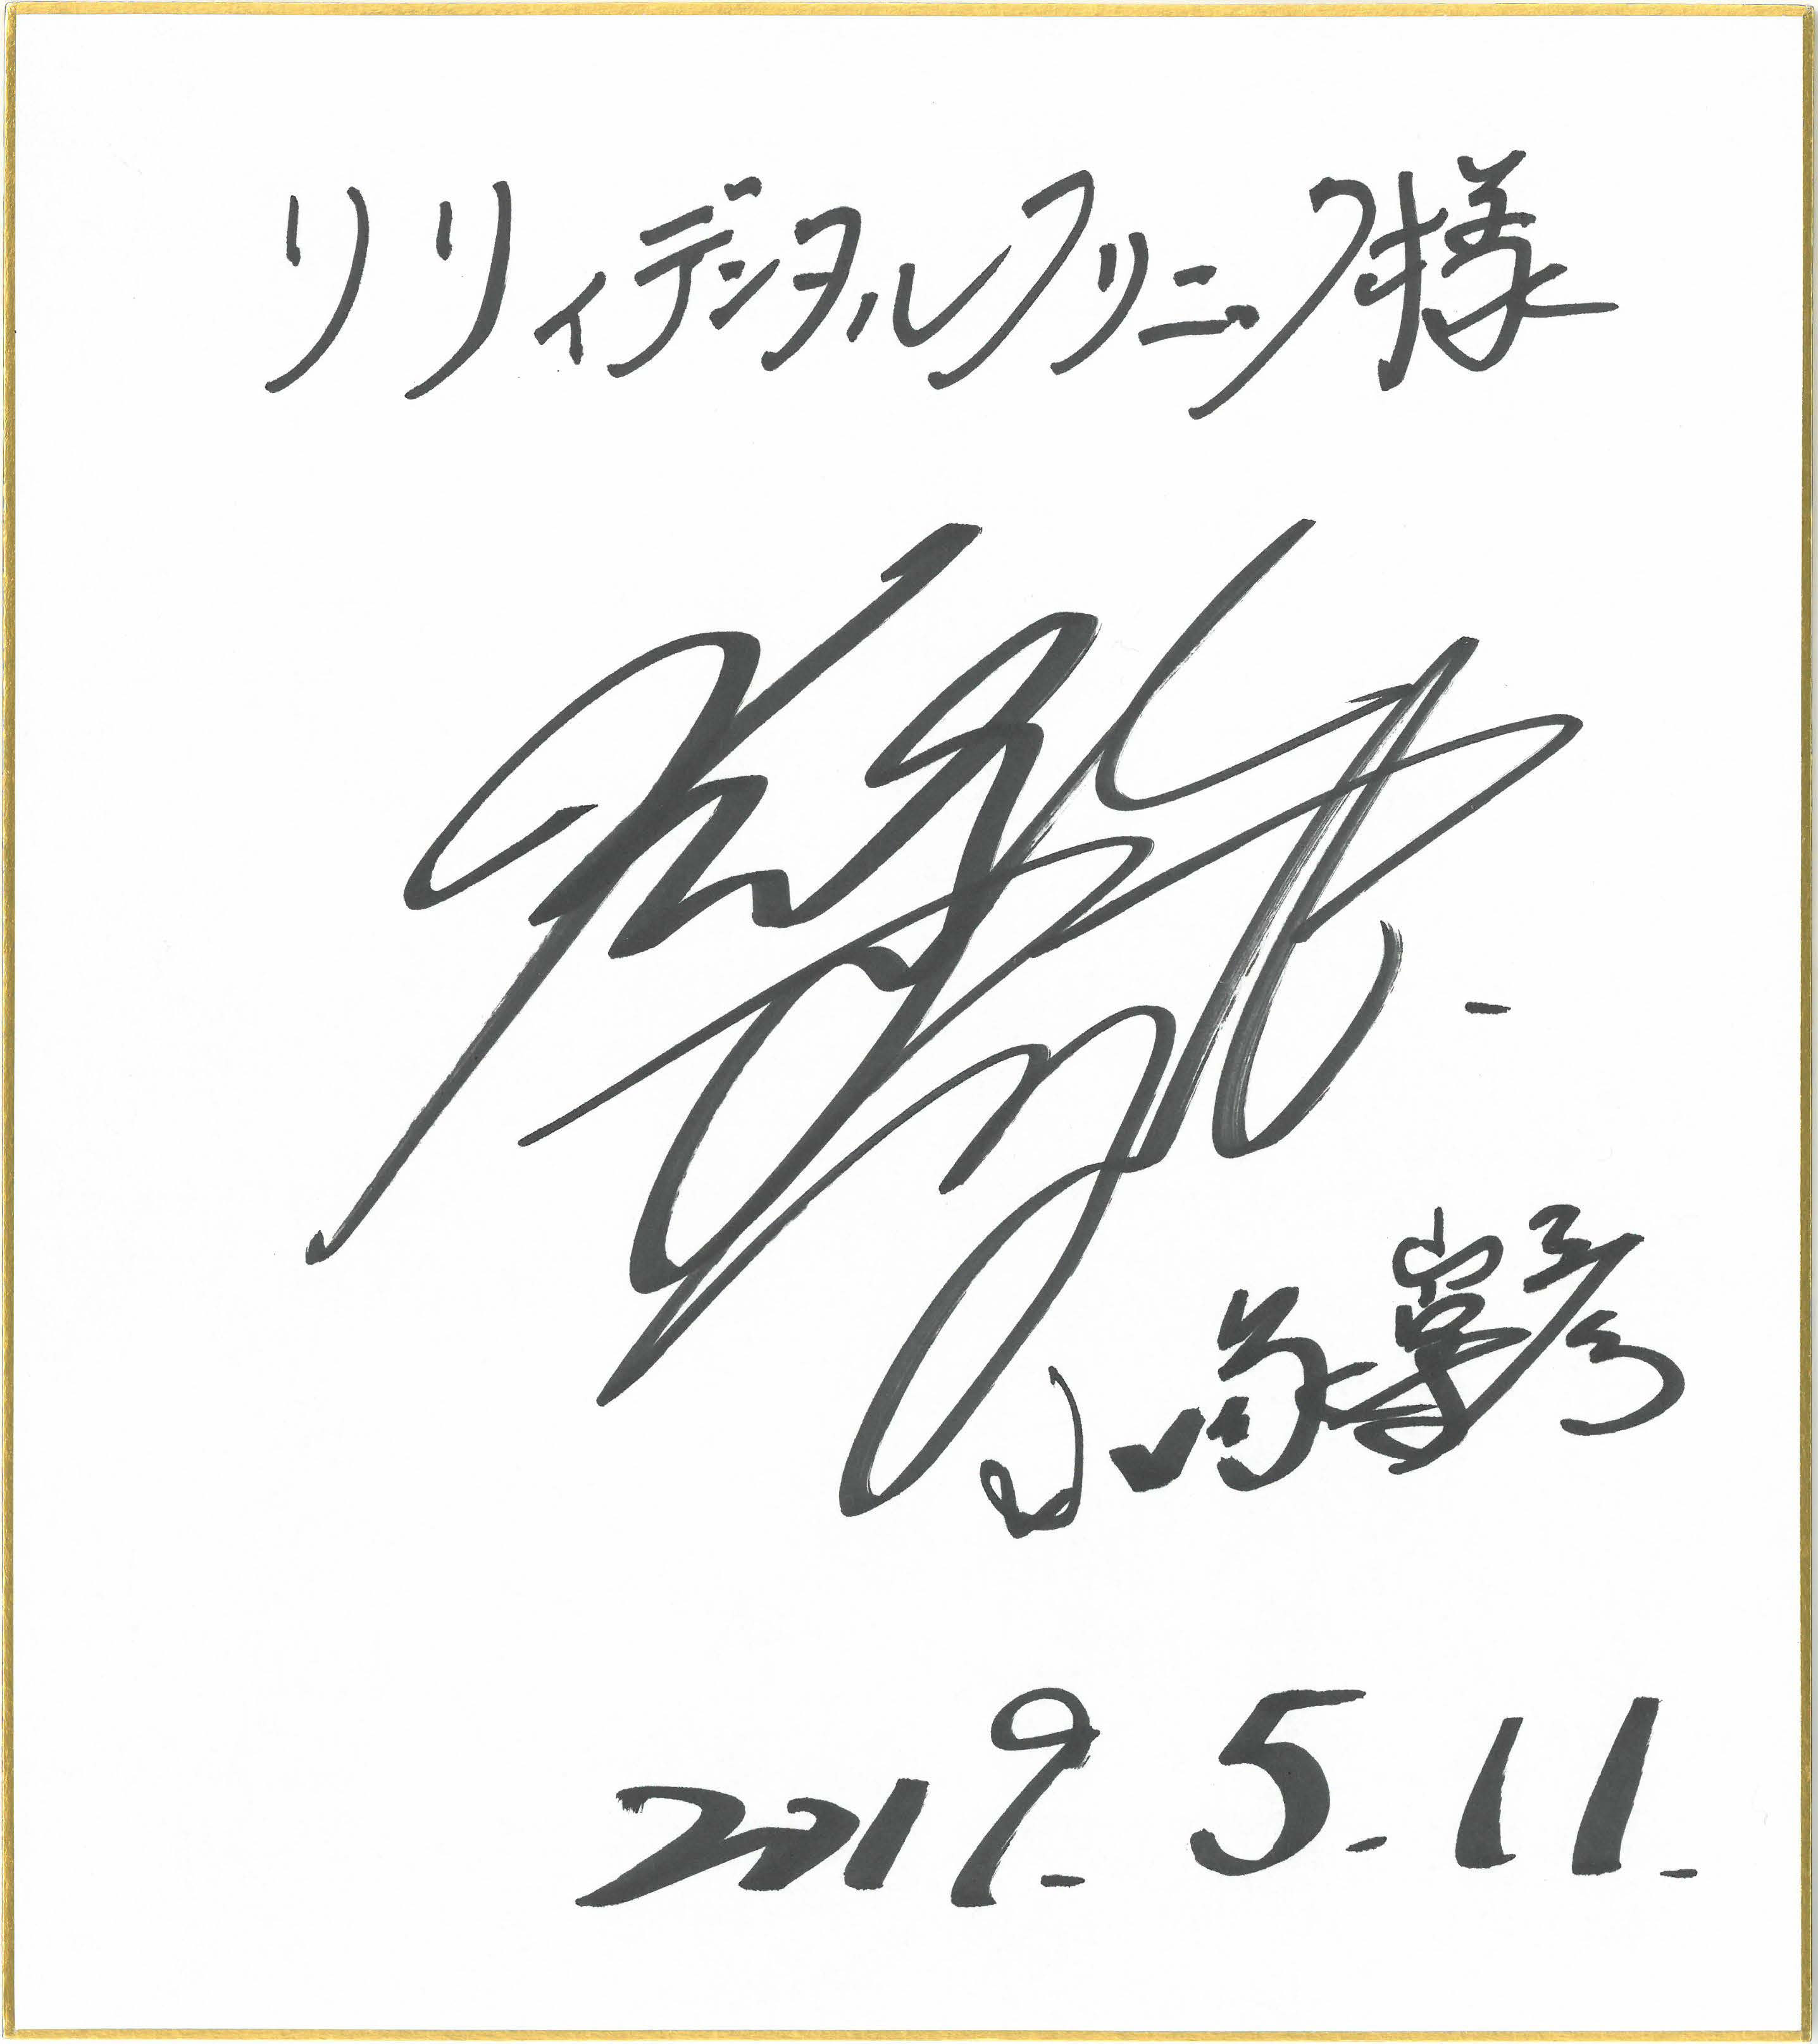 リリィデンタルクリニック様
小塚崇彦
2019. 5. 11.